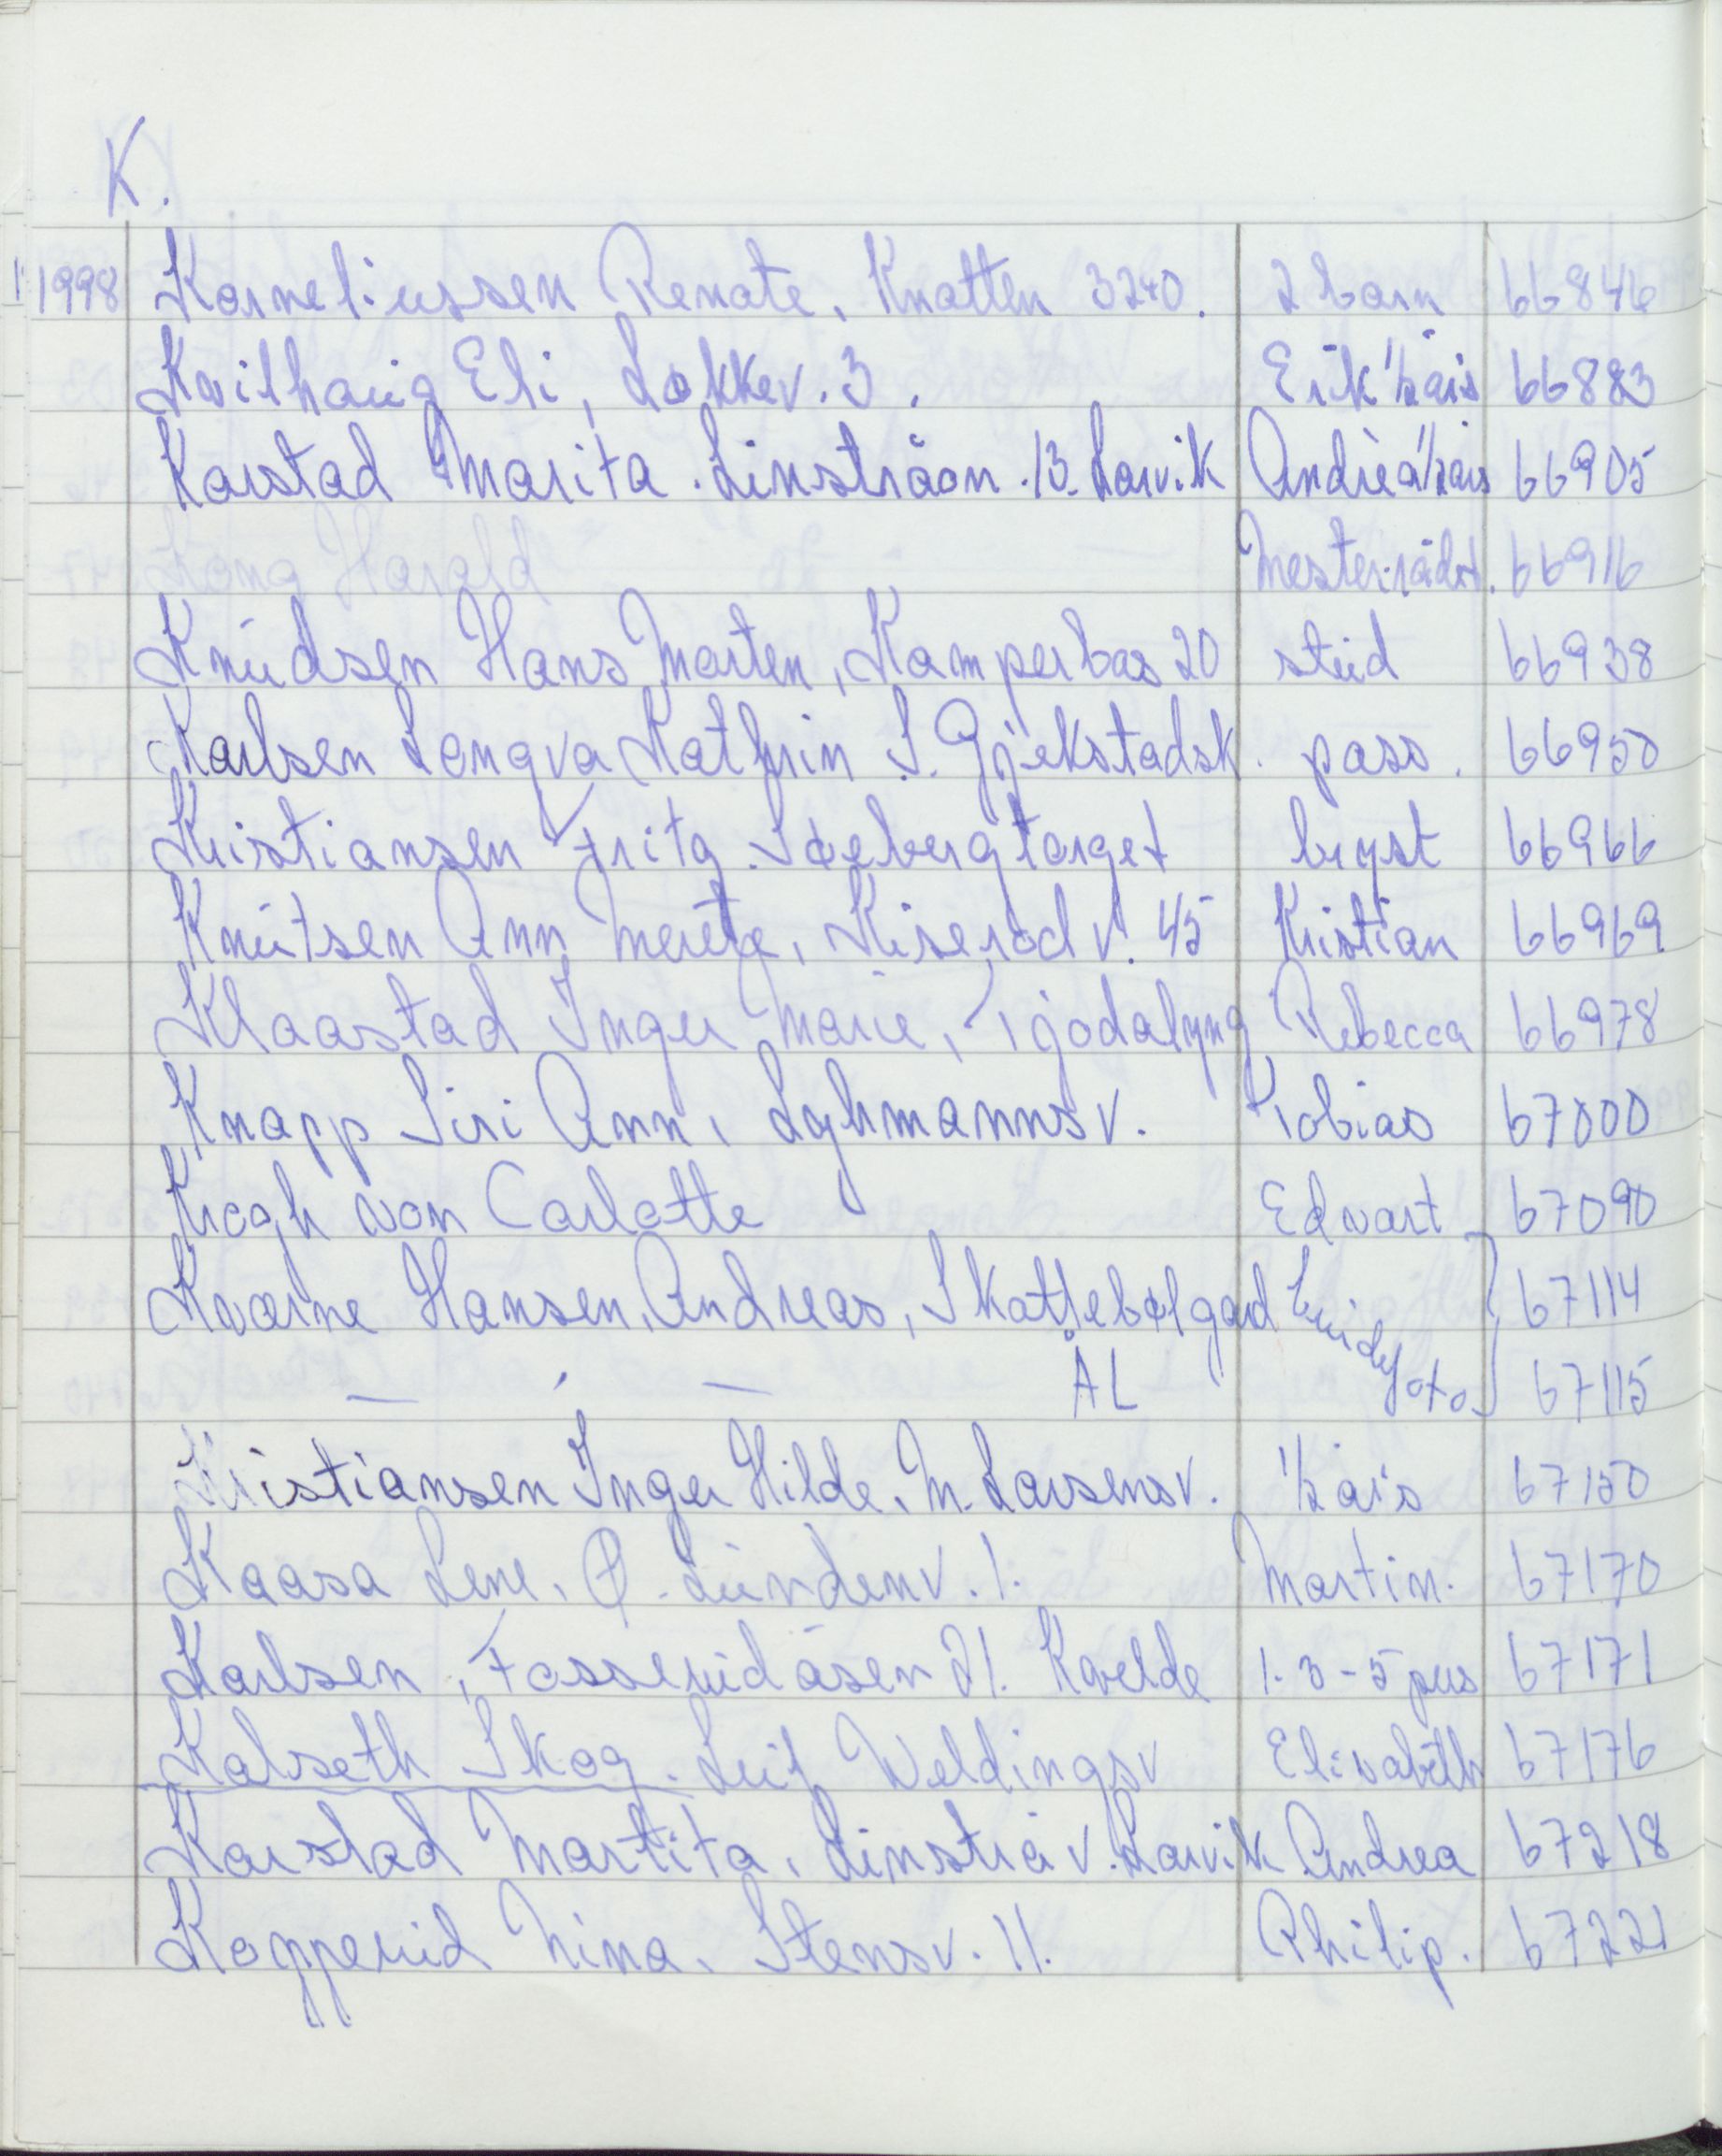 K.
1998 Korneliussen Renate, Knatten 3240. 2 barn 66846
Kvilhaug Eli, Løkkev. 3. Erik 1/2 års 66883
Karstad Marita. Linstråon. 13. Larvik Andrèa 1/2 års 66905
Mester. 66916
Knudsen Hans Marten, Kamperbas 20 stud 66938
Karlsen Longva Kathrin S. Gjekstadsk. pass. 66950
Kristiansen Fritz. Torget bryst 66966
Knutsen Ann Merete, Kiserød v. 45 Kristian 66969
Klaastad Inger Marie, Tjodalyng Rebecca 66978
Knapp Siri Ann, Lyhmannsv. Tobias 67000
Krogh von Carlotte Edvart 67090
Kvarne Hansen, Andreas, Skattebølgard brudefoto 67114
— ' — ÅL 67115
Kristiansen Inger Hilde. M. Larsensv. 1/2 års 67150
Kaasa Lene. O. Lundenv. 1. Martin. 67170
Karlsen, Fosserudåsen 21. Kvelde 1. 3 - 5 pers 67171
Kalseth Skog. Leif Weldingsv Elisabeth 67176
Karstad Martita. Linstrå v. Larvik Andrea 67218
Kopperud Nina. Stensv. 11. Philip. 67221